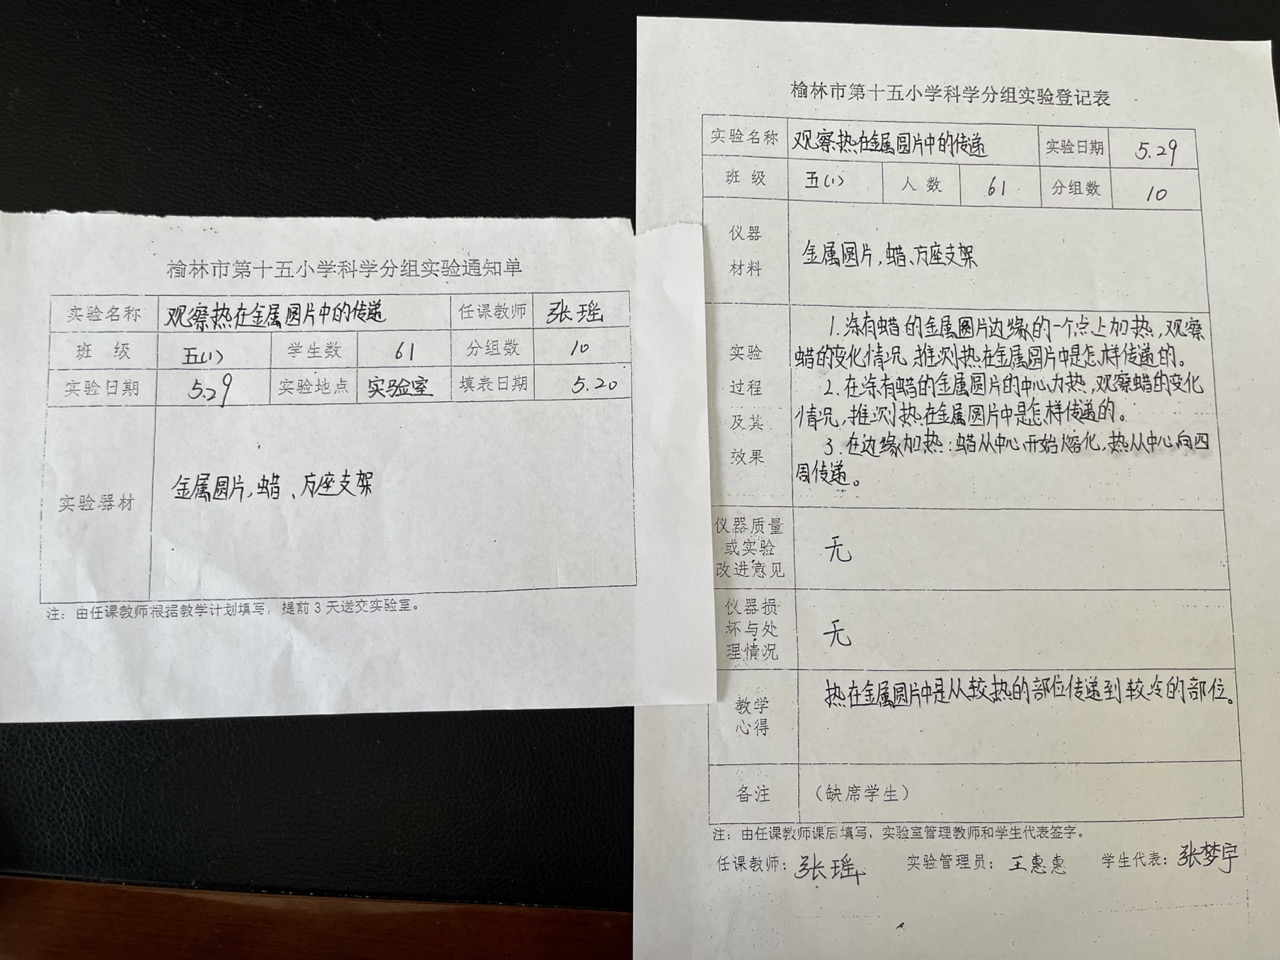 榆林市第十五小学科学分组实验通知单
实验名称 观察热在金属圆片中的传递 任课教师 张瑶
班 级 五(1) 学生数 61 分组数 10
实验日期 5.29 实验地点 实验室 填表日期 5.20
实验器材 金属圆片,蜡、方座支架
注:由任课教师根据教学计划填写,提前3天送交实验室。
榆林市第十五小学科学分组实验登记表
实验名称 观察热在金属圆片中的传递 实验日期 5.29
班 级 五(1) 人 数 61 分组数 10
仪器
材料
金属圆片,蜡、方座支架
实验
过程
及其
效果
1. 涂有蜡的金属圆片边缘的一个点上加热,观察
蜡的变化情况,推测热在金属圆片中是怎样传递的。
2. 在涂有蜡的金属圆片的中心加热,观察蜡的变化
情况,推测热在金属圆片中是怎样传递的。
3. 在边缘加热:蜡从中心开始熔化,热从中心向四
周传递。
仪器质量
或实验
改进意见
无
仪器损
坏与处
理情况
无
教学
心得
热在金属圆片中是从较热的部位传递到较冷的部位。
备注 (缺席学生)
注:由任课教师课后填写,实验室管理教师和学生代表签字。
任课教师:张瑶 实验管理员:王惠惠 学生代表:张梦宇